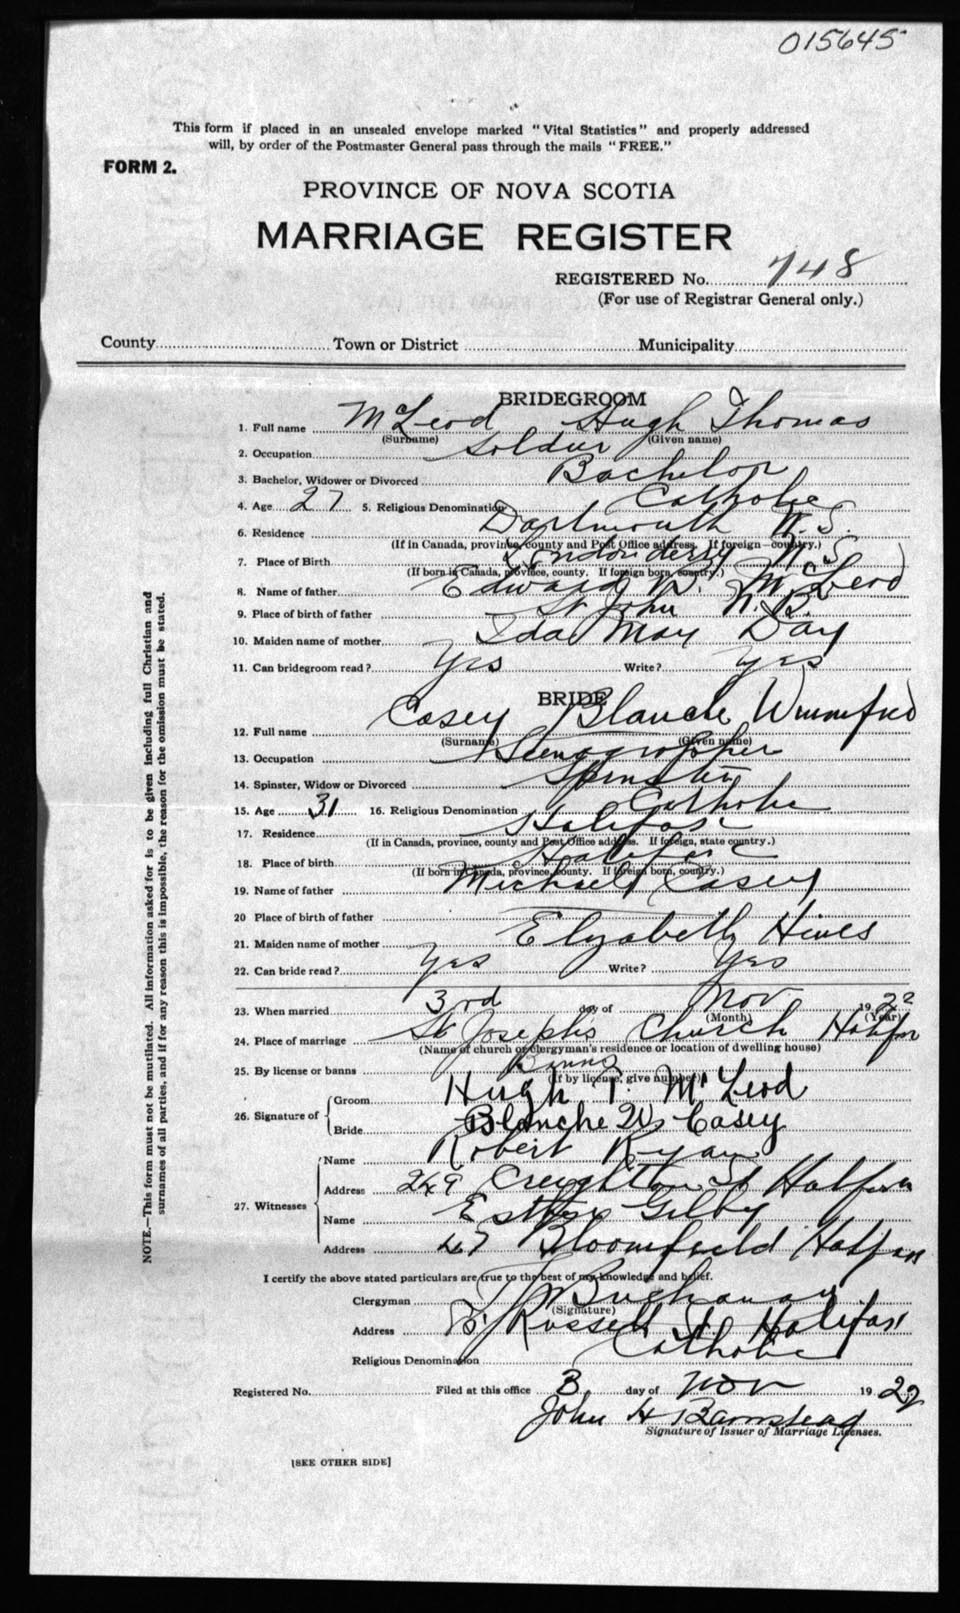 015645
This form if placed in an unsealed envelope marked "Vital Statistics" and properly addressed
will, by order of the Postmaster General pass through the mails "FREE."
FORM 2.
PROVINCE OF NOVA SCOTIA
MARRIAGE REGISTER
REGISTERED No. 748
(For use of Registrar General only.)
County Town or District Municipality
BRIDEGROOM
1. Full name McLeod Hugh Thomas
(Surname) (Given name)
2. Occupation Soldier
3. Bachelor, Widower or Divorced Bachelor
4. Age 27 5. Religious Denomination Catholic
6. Residence Dartmouth N.S.
(If in Canada, province, county and Post Office address. If foreign—country.)
7. Place of Birth Londonderry N.S
(If born in Canada, province, county. If foreign born, country.)
8. Name of father Edward D. McLeod
9. Place of birth of father St John N.B.
10. Maiden name of mother Ida May Day
11. Can bridegroom read? Yes Write? Yes
BRIDE
12. Full name Casey Blanche Winnifred
(Surname) (Given name)
13. Occupation Stenographer
14. Spinster, Widow or Divorced Spinster
15. Age 31 16. Religious Denomination Catholic
17. Residence Halifax
(If in Canada, province, county and Post Office address. If foreign, state country.)
18. Place of birth Halifax
(If born in Canada, province, county. If foreign born, country.)
19. Name of father Michael Casey
20 Place of birth of father
21. Maiden name of mother Elyzabeth Hines
22. Can bride read? Yes Write? Yes
23. When married 3rd day of Nov 1922
(Month) (Year)
24. Place of marriage St Joseph's Church Halifax
(Name of church or clergyman's residence or location of dwelling house)
25. By license or banns Banns
(If by license, give number)
26. Signature of Groom Hugh T. McLeod
Bride Blanche W. Casey
27. Witnesses Name Robert Ryan
Address 249 Creighton St Halifax
Name Esther Gilby
Address 47 Bloomfield Halifax
I certify the above stated particulars are true to the best of my knowledge and belief.
Clergyman Buchanan
(Signature)
Address Russell St Halifax
Religious Denomination Catholic
Registered No. Filed at this office 3 day of Nov 1922
John H Barnstead
Signature of Issuer of Marriage Licenses.
[SEE OTHER SIDE]
NOTE.—This form must not be mutilated. All information asked for is to be given including full Christian and
surnames of all parties, and if for any reason this is impossible, the reason for the omission must be stated.